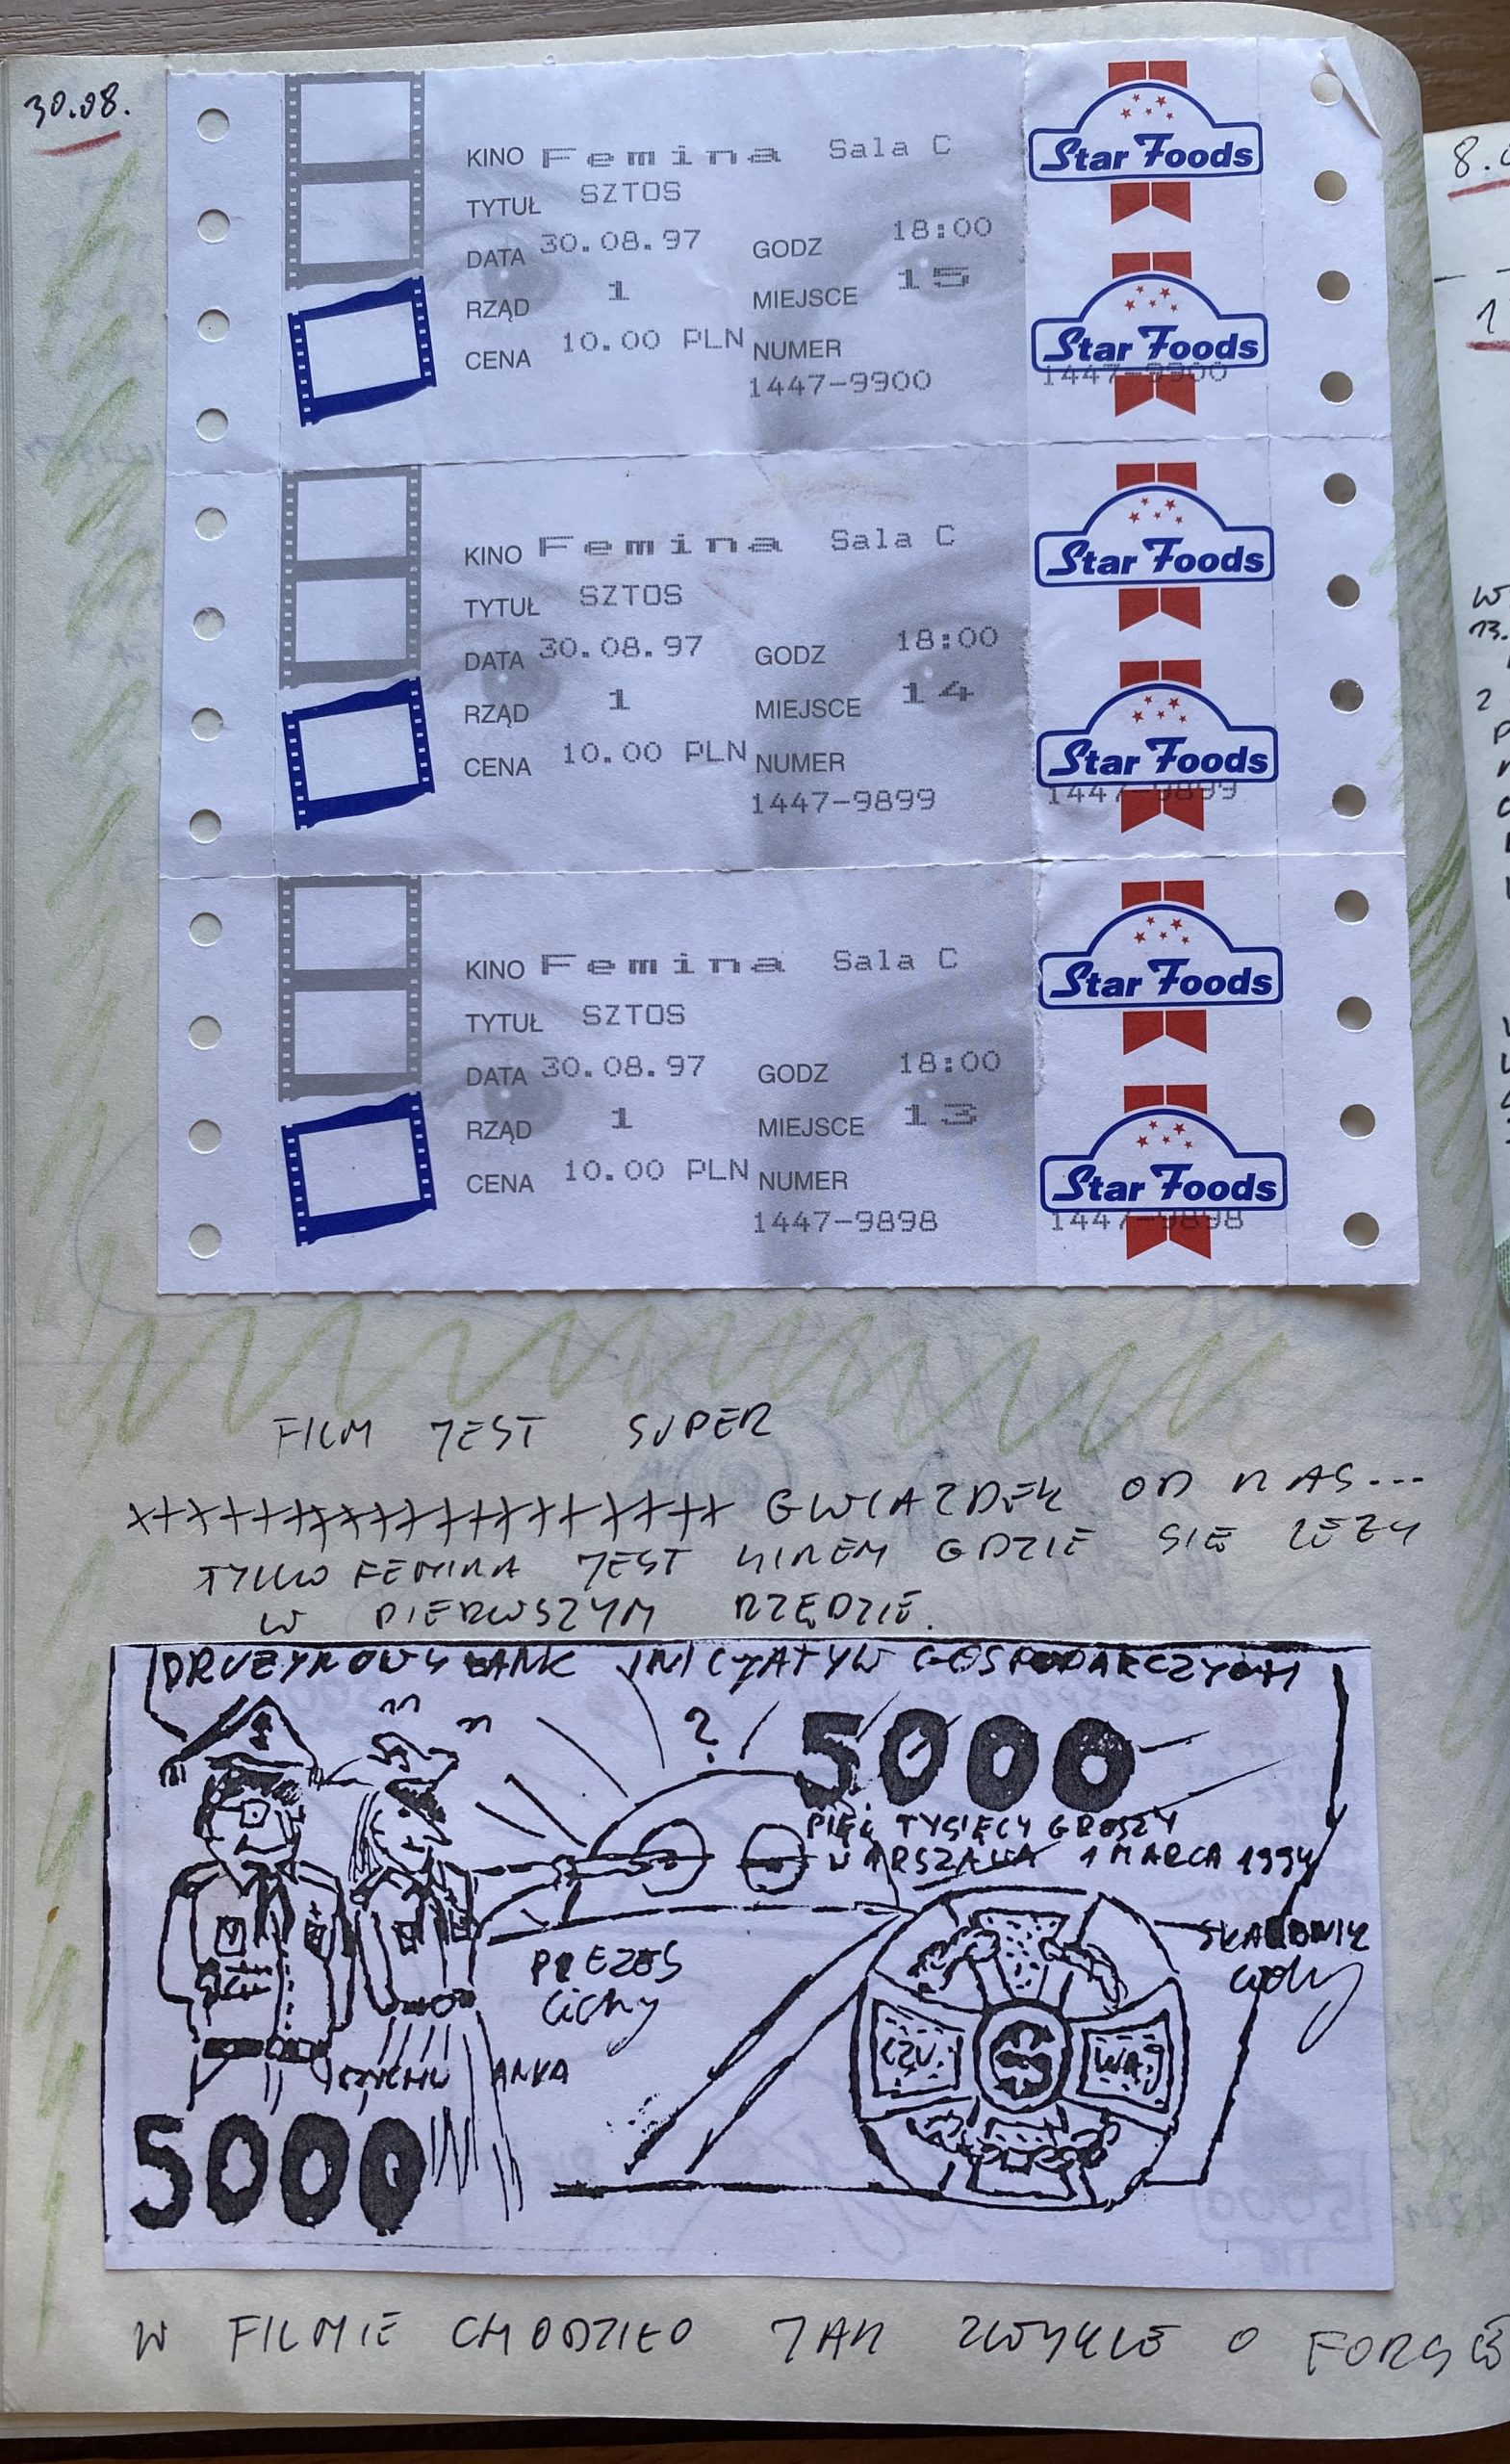 30.08.
KINO Femina Sala C
TYTUŁ SZTOS
DATA 30.08.97 GODZ 18:00
RZĄD 1 MIEJSCE 15
CENA 10.00 PLN NUMER
1447-9900
Star Foods
Star Foods
1447-9900
KINO Femina Sala C
TYTUŁ SZTOS
DATA 30.08.97 GODZ 18:00
RZĄD 1 MIEJSCE 14
CENA 10.00 PLN NUMER
1447-9899
Star Foods
Star Foods
1447-9899
KINO Femina Sala C
TYTUŁ SZTOS
DATA 30.08.97 GODZ 18:00
RZĄD 1 MIEJSCE 13
CENA 10.00 PLN NUMER
1447-9898
Star Foods
Star Foods
1447-9898
FILM JEST SUPER
GWIAZDEK OD NAS...
TYLKO FEMINA JEST KINEM GDZIE SIĘ LEŻY
W PIERWSZYM RZĘDZIE.
DRUŻYNOWY BANK INICJATYW GOSPODARCZYCH
?
5000
PIĘĆ TYSIĘCY GROSZY
WARSZAWA 1 MARCA 1994
PREZES
Cichy
SKARBNIK
CZU
WAJ
ANKA
5000
W FILMIE CHODZIŁO JAK ZWYKLE O FORSĘ
8.
1
W
13.
2